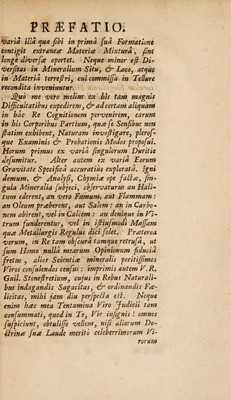 PRÆFATIO.
variâ illâ quæ sibi in primâ suâ Formatione
contigit extraneæ Materiæ Mixturâ, sint
longè diversæ oportet. Neque minor est Di-
versitas in Mineralium Situ, & Loco, atque
in Materiâ terrestri, cui commissa in Tellure
recondita inveniuntur.
Quò me vero melius ex his tam magnis
Difficultatibus expedirem, & ad certam aliquam
in hâc Re Cognitionem pervenirem, earum
in his Corporibus Partium, quæ se Sensibus non
statim exhibent, Naturam investigare, pleros-
que Examinis & Probationis Modos proposui.
Horum primus ex variâ singulorum Duritie
desumitur. Alter autem ex variâ Eorum
Gravitate Specificâ accuratiùs exploratâ. Igni
demum, & Analysi, Chymiæ ope factæ, sin-
gula Mineralia subjeci, observaturus an Hali-
tum ederent, an vero Fumum, aut Flammam:
an Oleum præberent, aut Salem: an in Carbo-
nem abirent, vel in Calcem: an denique in Vi-
trum funderentur, vel in istiusmodi Massam
quæ Metallurgis Regulus dici solet. Præterea
verum, in Re tam obscurâ tamque retrusâ, ut
sum Homo nullâ mearum Opinionum fiduciâ
fretus, alios Scientiæ mineralis peritissimos
Viros consulendos censui: imprimis autem V. R.
Guil. Stonestretium, cujus in Rebus Naturali-
bus indagandis Sagacitas, & ordinandis Fæ-
licitas, mihi jam diu perspecta est. Neque
enim hæc mea Tentamina Viro Judicii tam
consummati, quod in Te, Vir insignis! omnes
suspiciunt, obtulisse vellem, nisi aliorum Do-
ctrinæ suæ Laude meritò celeberrimorum Vi-
rorum